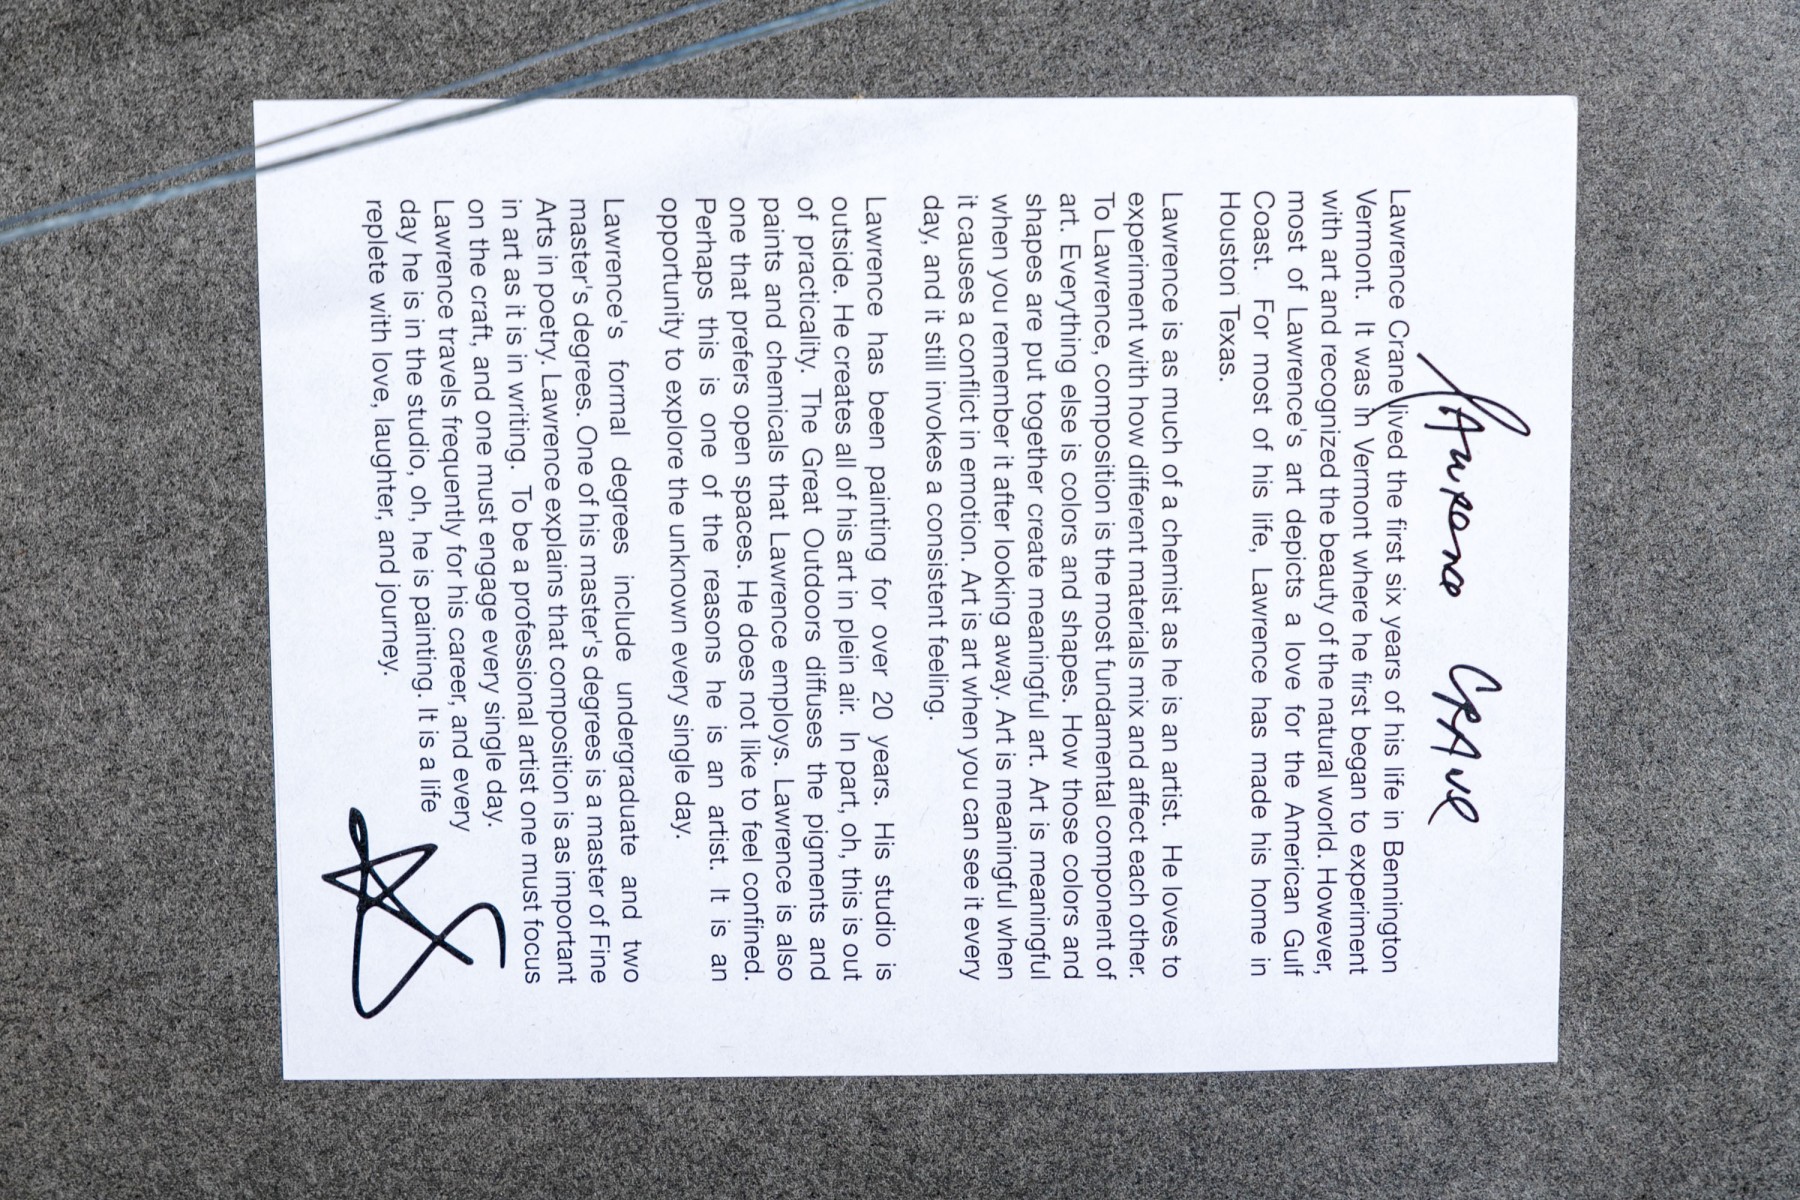 Lawrence Crane
Lawrence Crane lived the first six years of his life in Bennington
Vermont. It was in Vermont where he first began to experiment
with art and recognized the beauty of the natural world. However,
most of Lawrence's art depicts a love for the American Gulf
Coast. For most of his life, Lawrence has made his home in
Houston Texas.
Lawrence is as much of a chemist as he is an artist. He loves to
experiment with how different materials mix and affect each other.
To Lawrence, composition is the most fundamental component of
art. Everything else is colors and shapes. How those colors and
shapes are put together create meaningful art. Art is meaningful
when you remember it after looking away. Art is meaningful when
it causes a conflict in emotion. Art is art when you can see it every
day, and it still invokes a consistent feeling.
Lawrence has been painting for over 20 years. His studio is
outside. He creates all of his art in plein air. In part, oh, this is out
of practicality. The Great Outdoors diffuses the pigments and
paints and chemicals that Lawrence employs. Lawrence is also
one that prefers open spaces. He does not like to feel confined.
Perhaps this is one of the reasons he is an artist. It is an
opportunity to explore the unknown every single day.
Lawrence's formal degrees include undergraduate and two
master's degrees. One of his master's degrees is a master of Fine
Arts in poetry. Lawrence explains that composition is as important
in art as it is in writing. To be a professional artist one must focus
on the craft, and one must engage every single day.
Lawrence travels frequently for his career, and every
day he is in the studio, oh, he is painting. It is a life
replete with love, laughter, and journey.